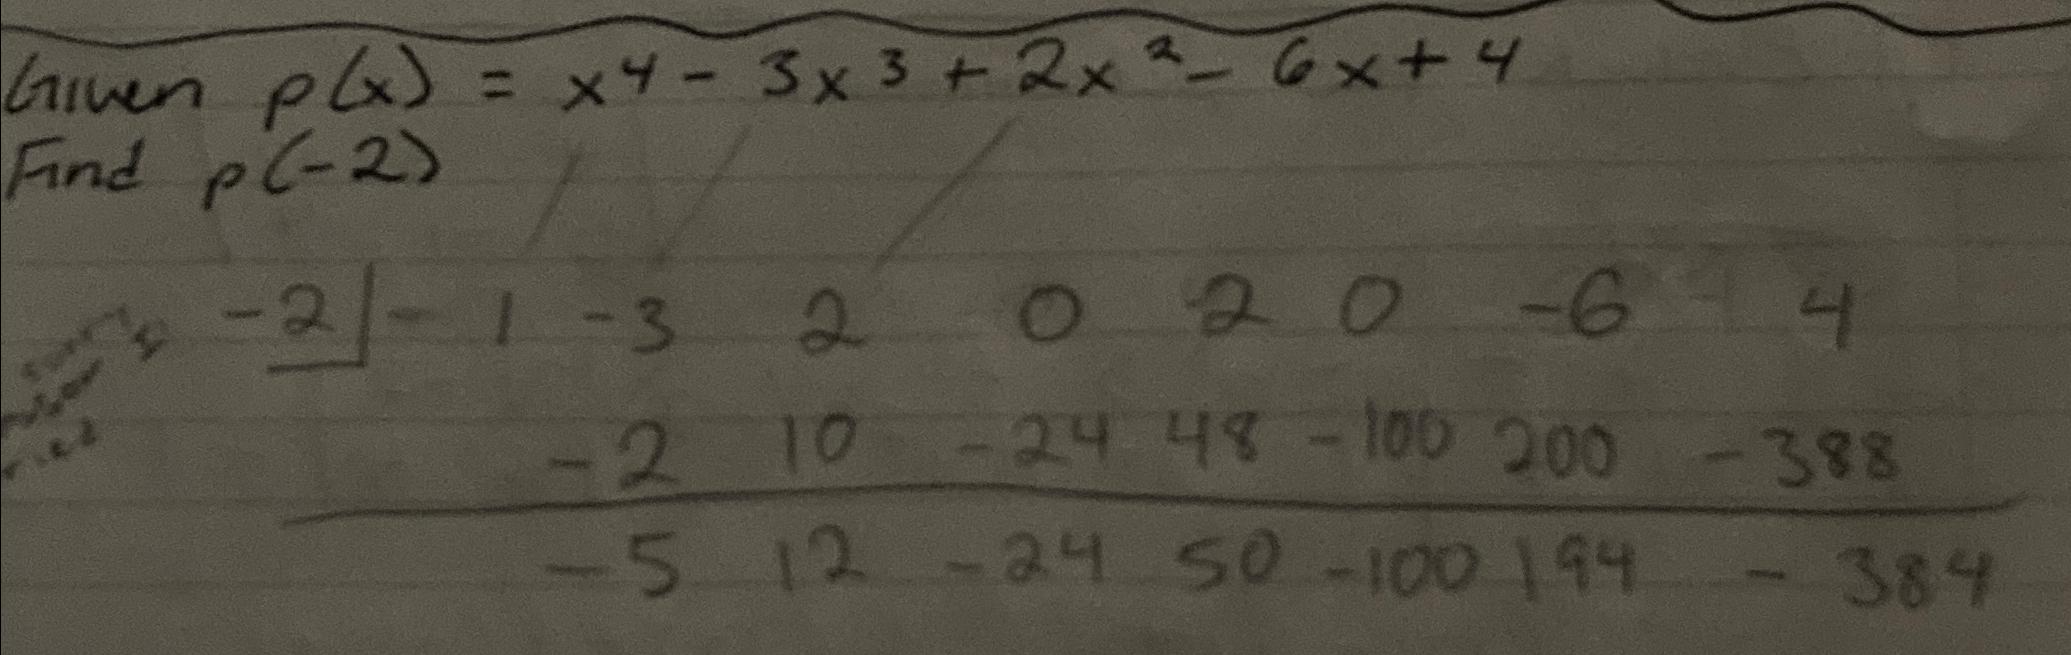 Given p(x) = x⁴ - 3x³ + 2x² - 6x + 4
Find p(-2)
-2 | - 1 -3 2 0 2 0 -6 4
-2 10 -24 48 -100 200 -388
-5 12 -24 50 -100 194 -384